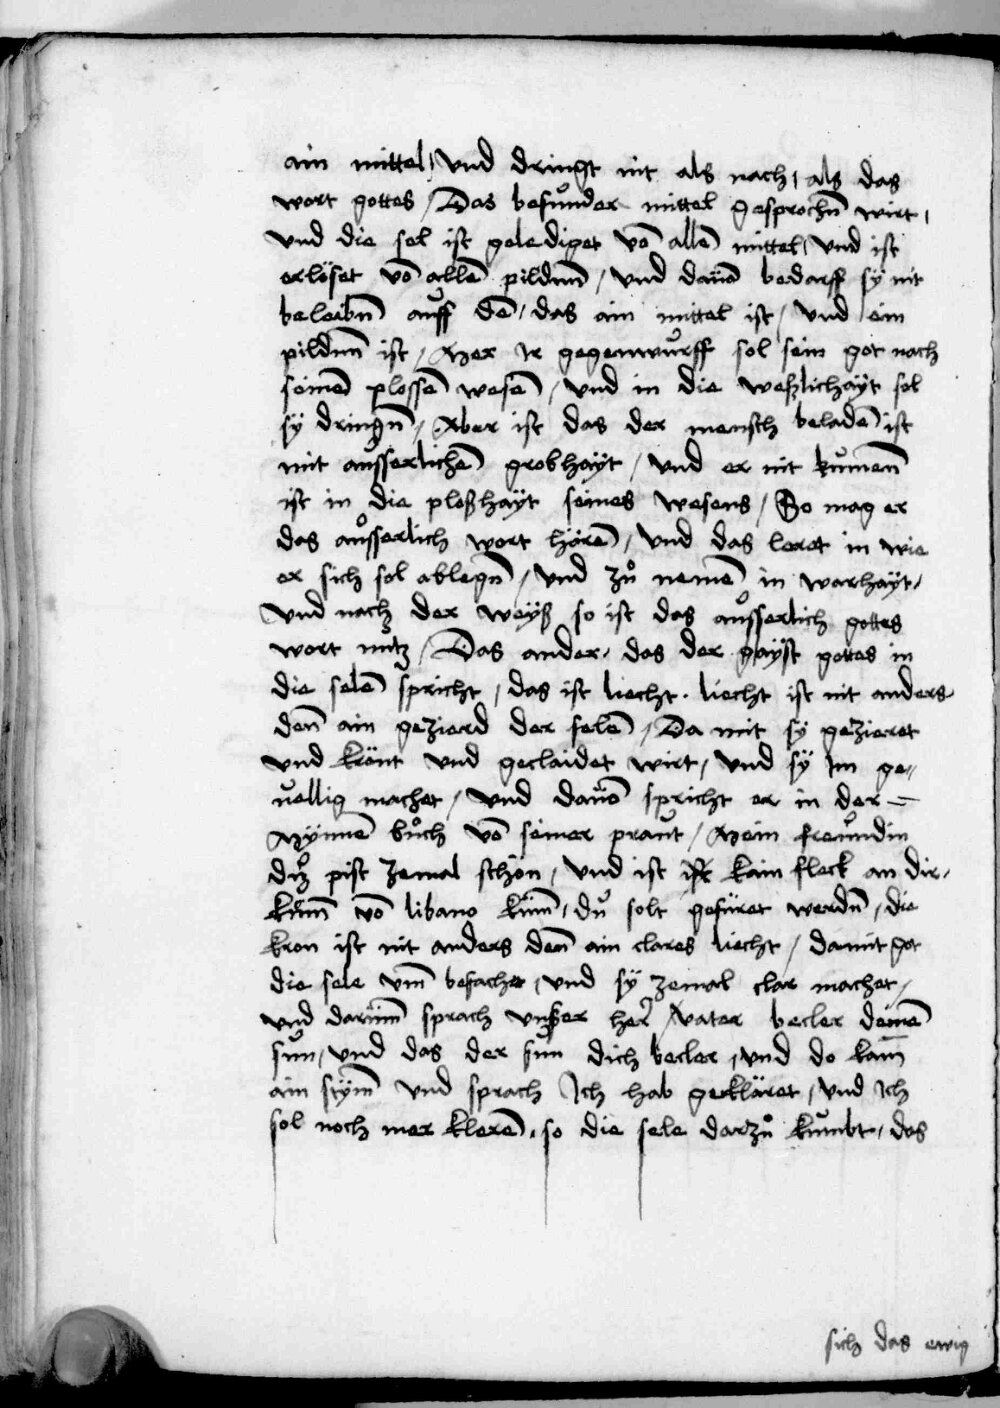 ain mittel / vnd dringt nit als nach / als das
wort gottes / Das besunder mittel gesprochñ wirt /
vnd die sel ist gelediget võ allẽ mittel / vnd ist
erlöset võ allẽ pildnñ / vnd dauõ bedarff sÿ nit
beleibñ auff dẽ / das ain mittel ist / vnd ein
pildnñ ist / Mer Ir gegenwurff sol sein got nach
seinẽ plossẽ wesẽ / vnd in die weßlichaÿt sol
sÿ dringñ / Aber ist das der mensch beladẽ ist
mit aůsserlichẽ grobhaÿt / vnd er nit kumenñ
ist in die ploßhaÿt seines wesens / So mag er
das aůsserlich wort hörẽ / vnd das leret in wie
er sich sol ablegñ / vnd zů nemẽ in warhaÿt /
vnd nach der weÿß so ist das aůsserlich gottes
wort nutz / Das ander / das der gaÿst gottes in
die selẽ spricht / das ist liecht . liecht ist nit anders
deñ ain gezierd der selẽ / Da mit sÿ gezieret
vnd krönt vnd geclaidet wirt / vnd sÿ Im ge„
uellig machet / vnd dauõ spricht er in der
Mÿnnẽ bůch võ seiner praut / Mein freundin
du pist zemal schön / vnd ist ist kain fleck an dir /
kum̃ võ libano kum̃ / du solt gefüret werdñ / die
kron ist nit anders deñ ain clares liecht / damit got
die sele vm̃ befachet / vnd sÿ zemal clar machet /
vnd darum̃ sprach vnser her̃ / vater becler deinẽ
sun / vnd das der sun dich becler / vnd do kam
ain stÿm̃ vnd sprach Ich hab gekläret / vnd Ich
sol noch mer klerẽ . so die sele darzů kumbt / das
sich das ewig